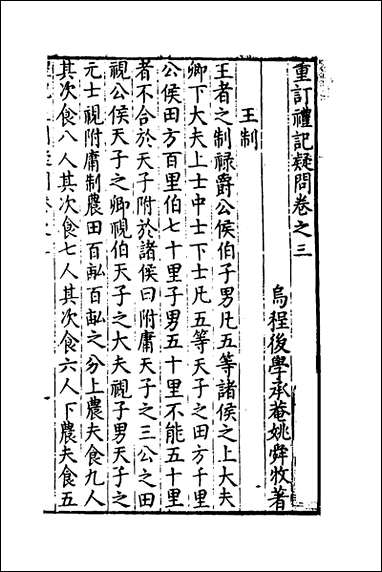 重訂禮記疑問卷之三
烏程後學承菴姚舜牧著
王制
王者之制祿爵公侯伯子男凡五等諸侯之上大夫
卿下大夫上士中士下士凡五等天子之田方千里
公侯田方百里伯七十里子男五十里不能五十里
者不合於天子附於諸侯曰附庸天子之三公之田
視公侯天子之卿視伯天子之大夫視子男天子之
元士視附庸制農田百畝百畝之分上農夫食九人
其次食八人其次食七人其次食六人下農夫食五